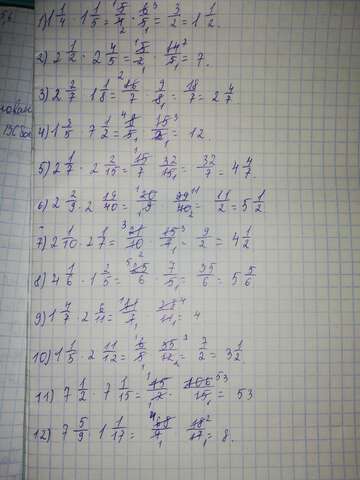 1) 1 1/4 · 1 1/5 = 5/4 · 6/5 = 3/2 = 1 1/2.
2) 2 1/2 · 2 4/5 = 5/2 · 14/5 = 7.
3) 2 2/7 · 1 1/8 = 16/7 · 9/8 = 18/7 = 2 4/7
4) 1 3/5 · 7 1/2 = 8/5 · 15/2 = 12.
5) 2 1/7 · 2 2/15 = 15/7 · 32/15 = 32/7 = 4 4/7.
6) 2 2/9 · 2 19/40 = 20/9 · 99/40 = 11/2 = 5 1/2
7) 2 1/10 · 2 1/7 = 21/10 · 15/7 = 9/2 = 4 1/2
8) 4 1/6 · 1 2/5 = 25/6 · 7/5 = 35/6 = 5 5/6
9) 1 4/7 · 2 6/11 = 11/7 · 28/11 = 4
10) 1 1/5 · 2 11/12 = 6/5 · 35/12 = 7/2 = 3 1/2
11) 7 1/2 · 7 1/15 = 15/2 · 106/15 = 53
12) 7 5/9 · 1 1/17 = 68/9 · 18/17 = 8.